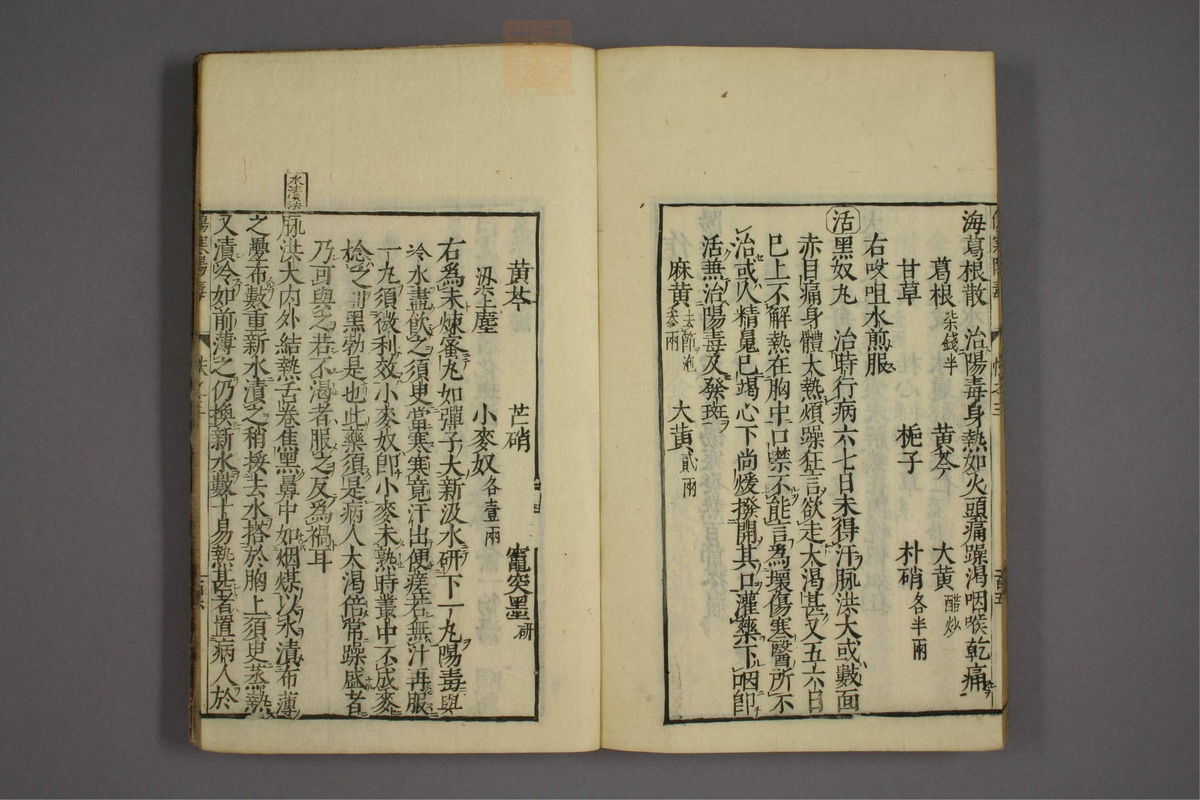 海葛根散 治陽毒身熱如火頭痛躁渴咽喉乾痛
葛根 柒錢半 黄芩 大黄 醋炒
甘草 梔子 朴硝 各半兩
右㕮咀水煎服
活黑奴丸 治時行病六七日未得汗脉洪大或數面
赤目痛身體大熱煩躁狂言欲走大渴甚又五六日
已上不解熱在胸中口噤不能言為壞傷寒醫所不
治或人精䰟已竭心下尚煖撥開其口灌藥下咽即
活兼治陽毒及發斑
麻黄 去節泡 叅兩 大黄 貳兩
黄芩 芒硝 竈突墨 研
梁上塵 小麥奴 各壹兩
右為末煉蜜丸如彈子大新汲水研下一丸陽毒與
冷水盡飲之須臾當寒寒竟汗出便瘥若無汗再服
一丸須微利效小麥奴即小麥未熟時叢中不成麥
捻之黑勃是也此藥須是病人大渴倍常躁盛者
乃可與之若不渴者服之反為禍耳
水漬法
脉洪大内外結熱舌卷焦黑鼻中如烟煤以水漬布薄
之疊布數重新水漬之稍捩去水搭於胸上須臾蒸熱
又漬冷如前薄之仍換新水數十易熱甚者置病人於